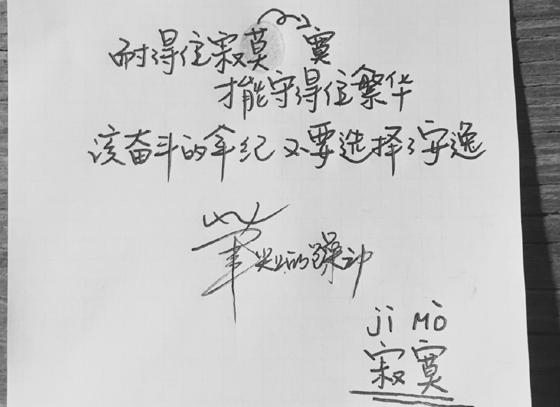 耐得住寂莫 寞
才能守得住繁华
该奋斗的年纪不要选择了安逸
笔尖上的躁动
jì MÒ
寂寞